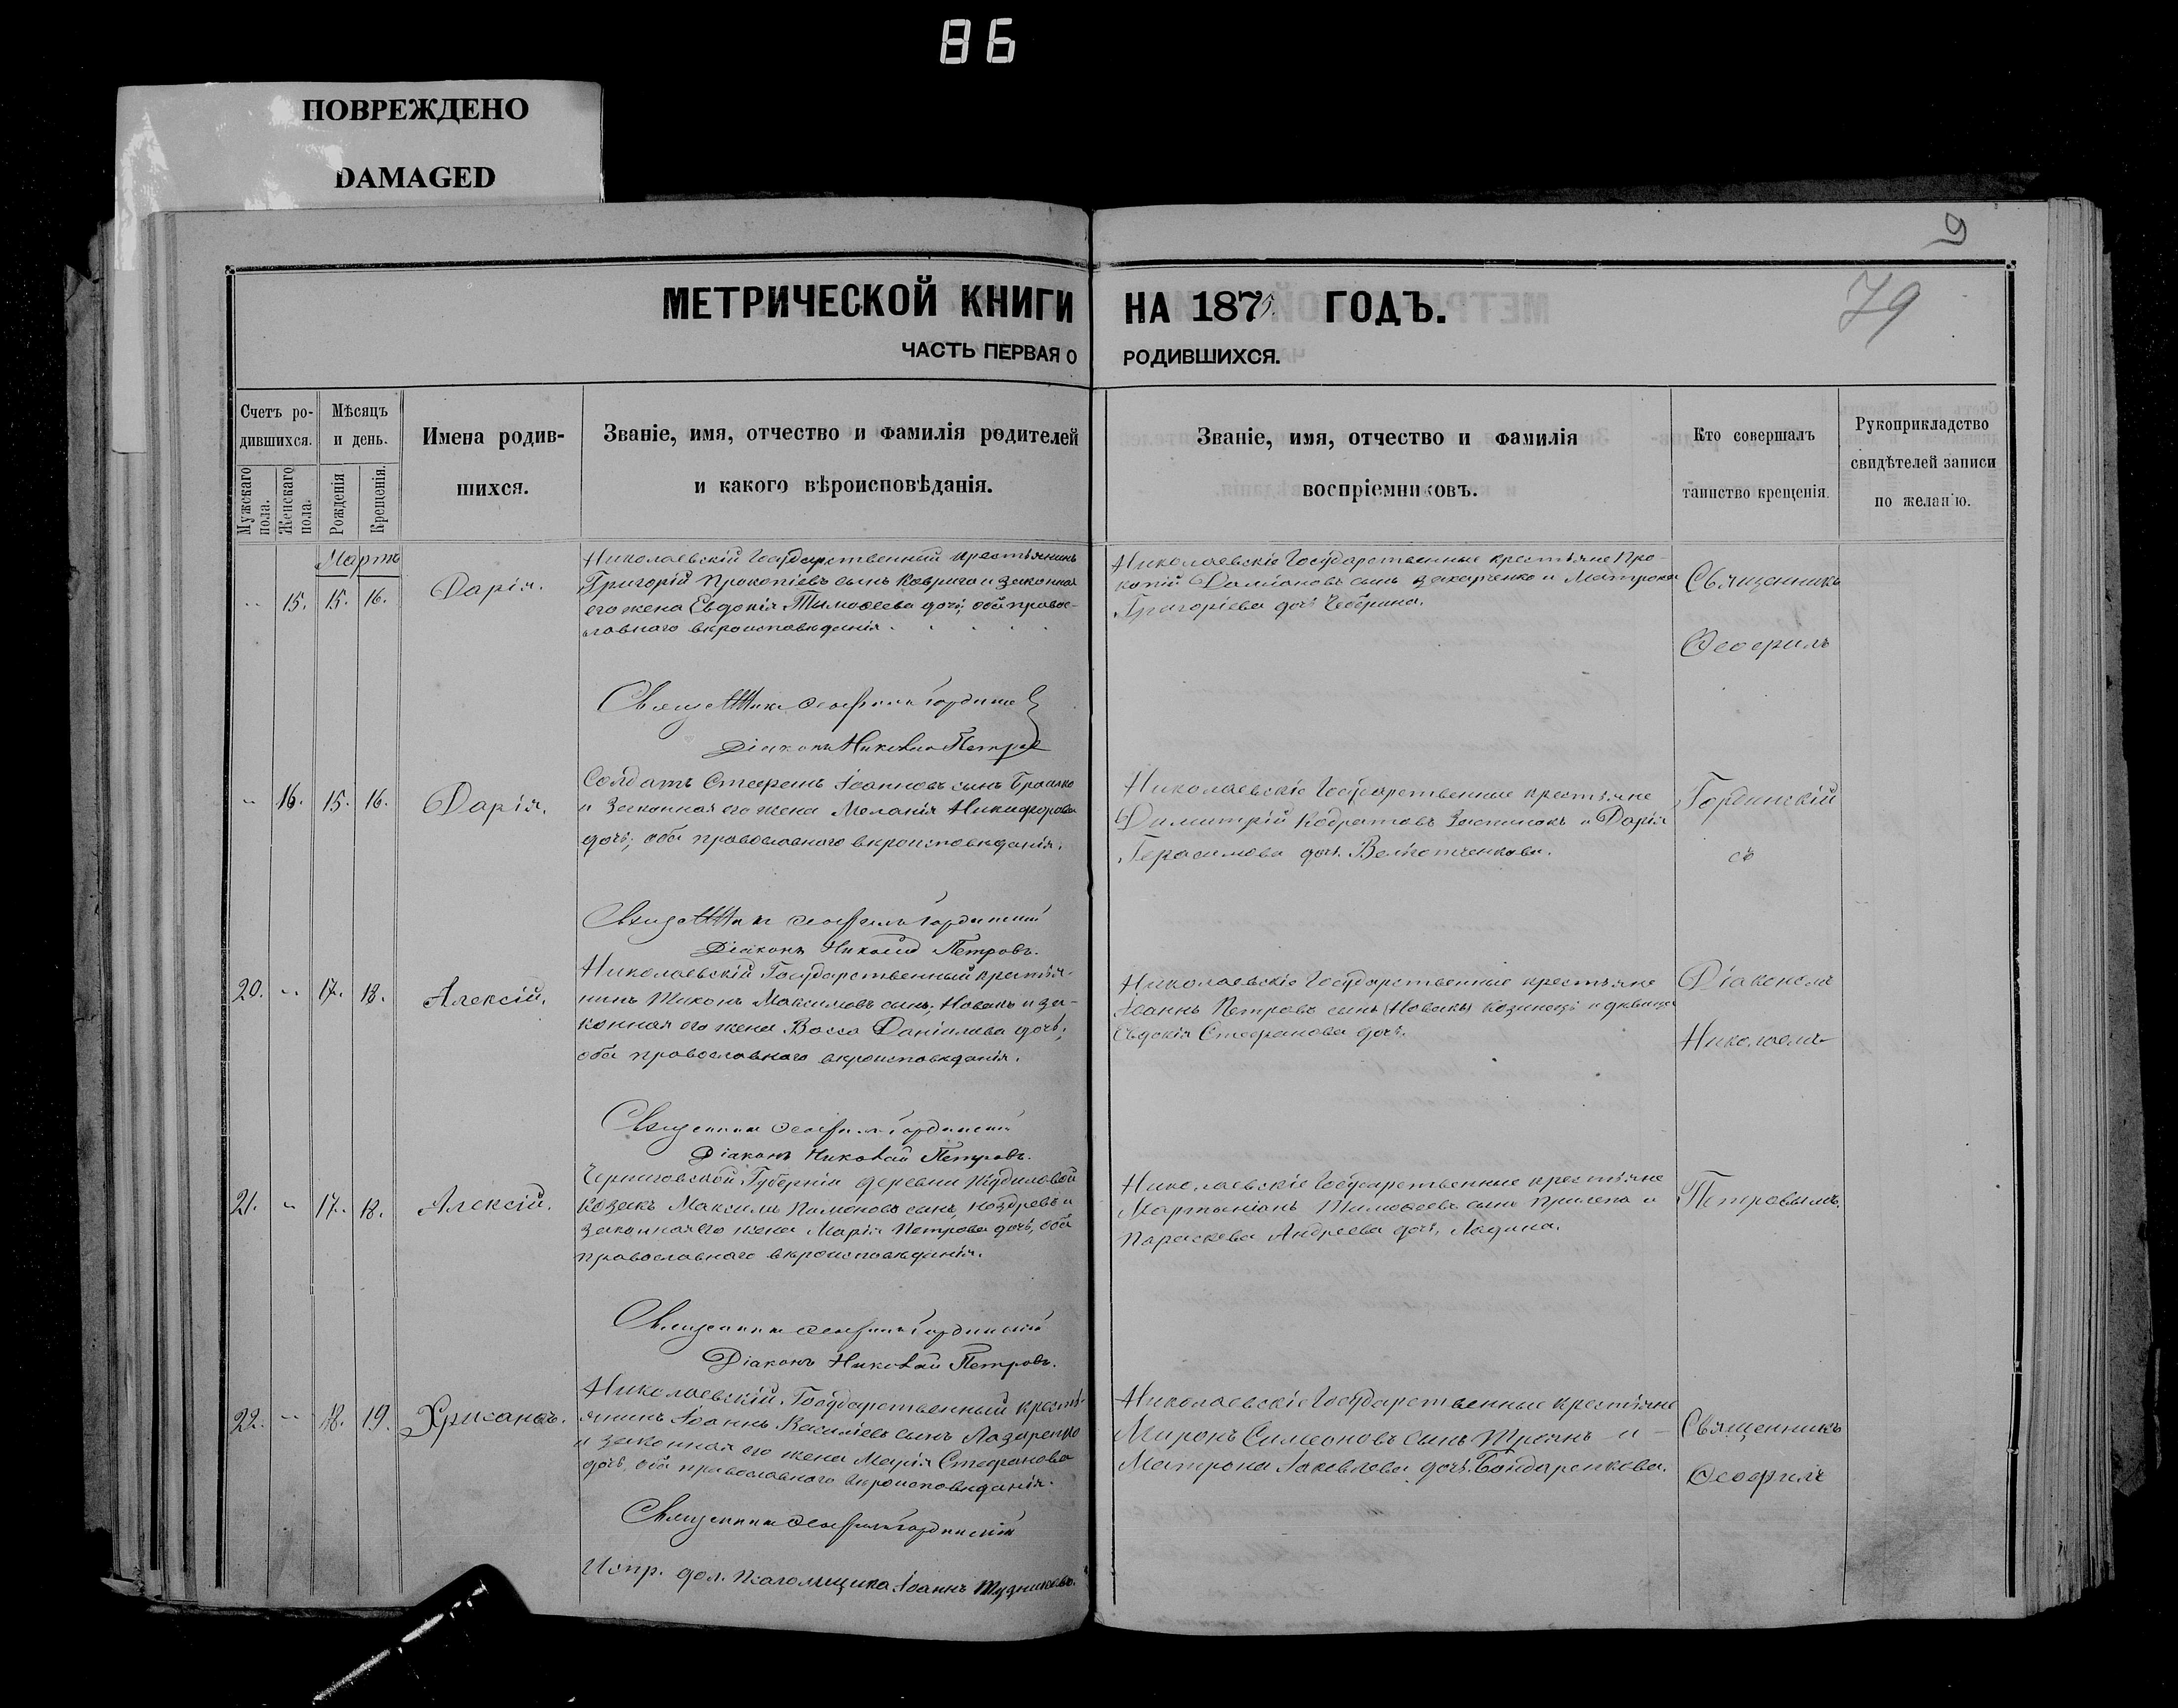 86
ПОВРЕЖДЕНО
DAMAGED
9
79
МЕТРИЧЕСКОЙ КНИГИ НА 1875 ГОДЪ.
ЧАСТЬ ПЕРВАЯ О РОДИВШИХСЯ.
Счетъ ро-
дившихся.
Мужскаго пола.
Женскаго пола.
Мѣсяцъ
и день.
Рожденія
Крещенія.
Имена родив-
шихся.
Званіе, имя, отчество и фамилія родителей
и какого вѣроисповѣданія.
Званіе, имя, отчество и фамилія
воспріемниковъ.
Кто совершалъ
таинство крещенія.
Рукоприкладство
свидѣтелей записи
по желанію.
Мартъ
15. 15. 16.
Дарія.
Николаевскій Государственный крестьянинъ
Григорій Прокопіевъ сынъ Коврига и законная
его жена Евдокія Тимоѳеева дочь, оба правос-
лавнаго вѣроисповѣданія.
Николаевскіе Государственные крестьяне Про-
копій Даміановъ сынъ Захарченко и Матрона
Григоріева дочь
Священникъ
Ѳеофилъ
Священникъ Ѳеофилъ Гординскій
Діаконъ Николай Петровъ
16. 15. 16.
Дарія.
Солдатъ Стефанъ Іоанновъ сынъ
и законная его жена Меланія Никифорова
дочь; оба православнаго вѣроисповѣданія.
Николаевскіе Государственные крестьяне
Димитрій и Дарія
Герасимова дочь
Гординскій
съ
Священникъ Ѳеофилъ Гординскій
Діаконъ Николай Петровъ.
20. 17. 18.
Алексій.
Николаевскій Государственный крестья-
нинъ Тихонъ Максимовъ сынъ Новакъ и за-
конная его жена Васса Даніилова дочь;
оба православнаго вѣроисповѣданія.
Николаевскіе Государственные крестьяне
Іоаннъ Петровъ сынъ и дѣвица
Евдокія Стефанова дочь.
Діакономъ
Николаемъ
Священникъ Ѳеофилъ Гординскій
Діаконъ Николай Петровъ.
21. 17. 18.
Алексій.
Черниговской Губерніи деревни
Козакъ Максимъ сынъ и
законная его жена Марія Петрова дочь, оба
православнаго вѣроисповѣданія.
Николаевскіе Государственные крестьяне
Мартиніанъ Тимоѳеевъ сынъ и
Параскева Андреева дочь
Петровымъ.
Священникъ Ѳеофилъ Гординскій
Діаконъ Николай Петровъ.
22. 18. 19.
Хрисанѳъ.
Николаевскій Государственный кресть-
янинъ Іоаннъ Василіевъ сынъ Лазаренко
и законная его жена Марія Стефанова
дочь, оба православнаго вѣроисповѣданія.
Николаевскіе Государственные крестьяне
Миронъ Симеоновъ сынъ Троянъ и
Матрона Іаковлева дочь Бондаренкова.
Священникъ
Ѳеофилъ
Священникъ Ѳеофилъ Гординскій
Испр. дол. Псаломщика Іоаннъ